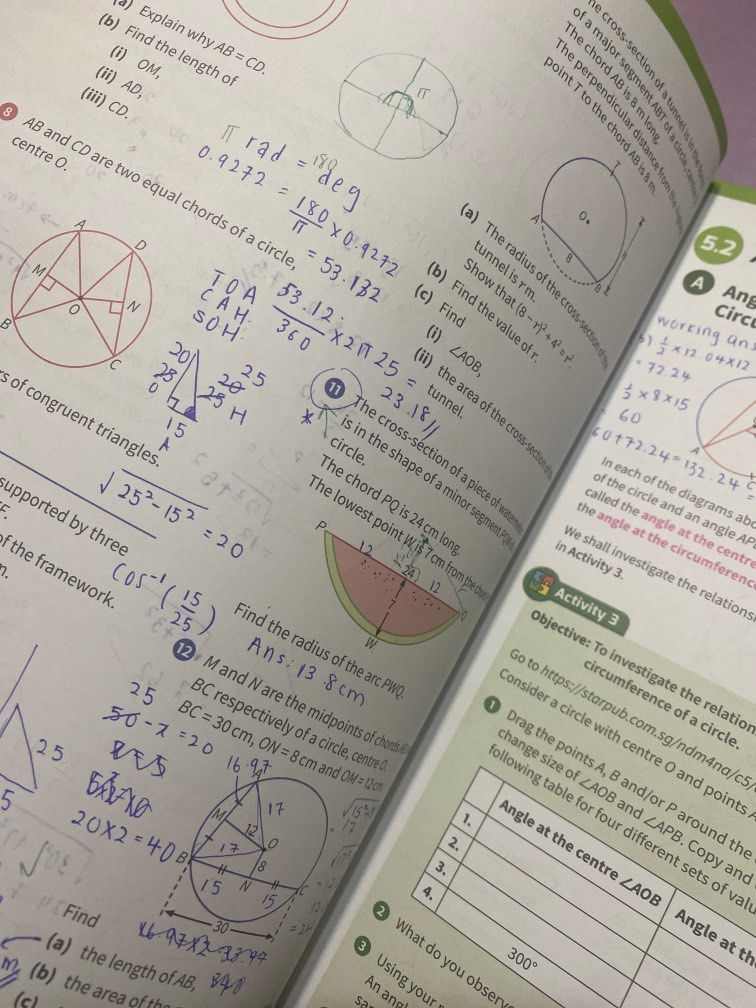 (a) Explain why AB = CD.
(b) Find the length of
(i) OM,
(ii) AD,
(iii) CD.
π
π rad = 180 deg
0.9272 = 180/π × 0.9272
= 53.132
8 AB and CD are two equal chords of a circle,
centre O.
A
D
M
N
O
B
C
TOA
CAH
SOH
53.12
360
× 2π 25 =
23.18 //
20
25
O
25
H
15
A
of congruent triangles.
√25² - 15² = 20
supported by three
of the framework.
cos⁻¹ (15/25)
25
50 - x = 20
20 × 2 = 40
25
5
The cross-section of a tunnel is in the
of a major segment ABT of a circle, centre
The chord AB is 8 m long.
The perpendicular distance from the
point T to the chord AB is 8 m.
T
O
A
8
B
8
(a) The radius of the cross-section of the
tunnel is r m.
Show that (8 – r)² + 4² = r².
(b) Find the value of r.
(c) Find
(i) ∠AOB,
(ii) the area of the cross-section of the
tunnel.
11 The cross-section of a piece of watermelon
is in the shape of a minor segment PQW
circle.
The chord PQ is 24 cm long.
The lowest point W is 7 cm from the chord
P
12
24
12
Q
7
W
Find the radius of the arc PWQ.
Ans: 13.8cm
12 M and N are the midpoints of chords AB
BC respectively of a circle, centre O.
BC = 30 cm, ON = 8 cm and OM = 12 cm
16.97
A
17
M
12
O
17
8
B
15
N
15
C
30
16.97×2=33.94
Find
(a) the length of AB,
(b) the area of the
(c)
5.2
A Ang
Circ
working ans
½ × 12.04 × 12
= 72.24
½ × 8 × 15
60
60 + 72.24 = 132.24
A
C
In each of the diagrams abo
of the circle and an angle AP
called the angle at the centre
the angle at the circumference
We shall investigate the relations
in Activity 3.
Activity 3
Objective: To investigate the relation
circumference of a circle.
Go to https://starpub.com.sg/ndm4na/c5/
Consider a circle with centre O and points A
1 Drag the points A, B and/or P around the
change size of ∠AOB and ∠APB. Copy and
following table for four different sets of valu
Angle at the centre ∠AOB
Angle at th
1.
2.
3.
4.
300°
2 What do you observe
3 Using your
An angl